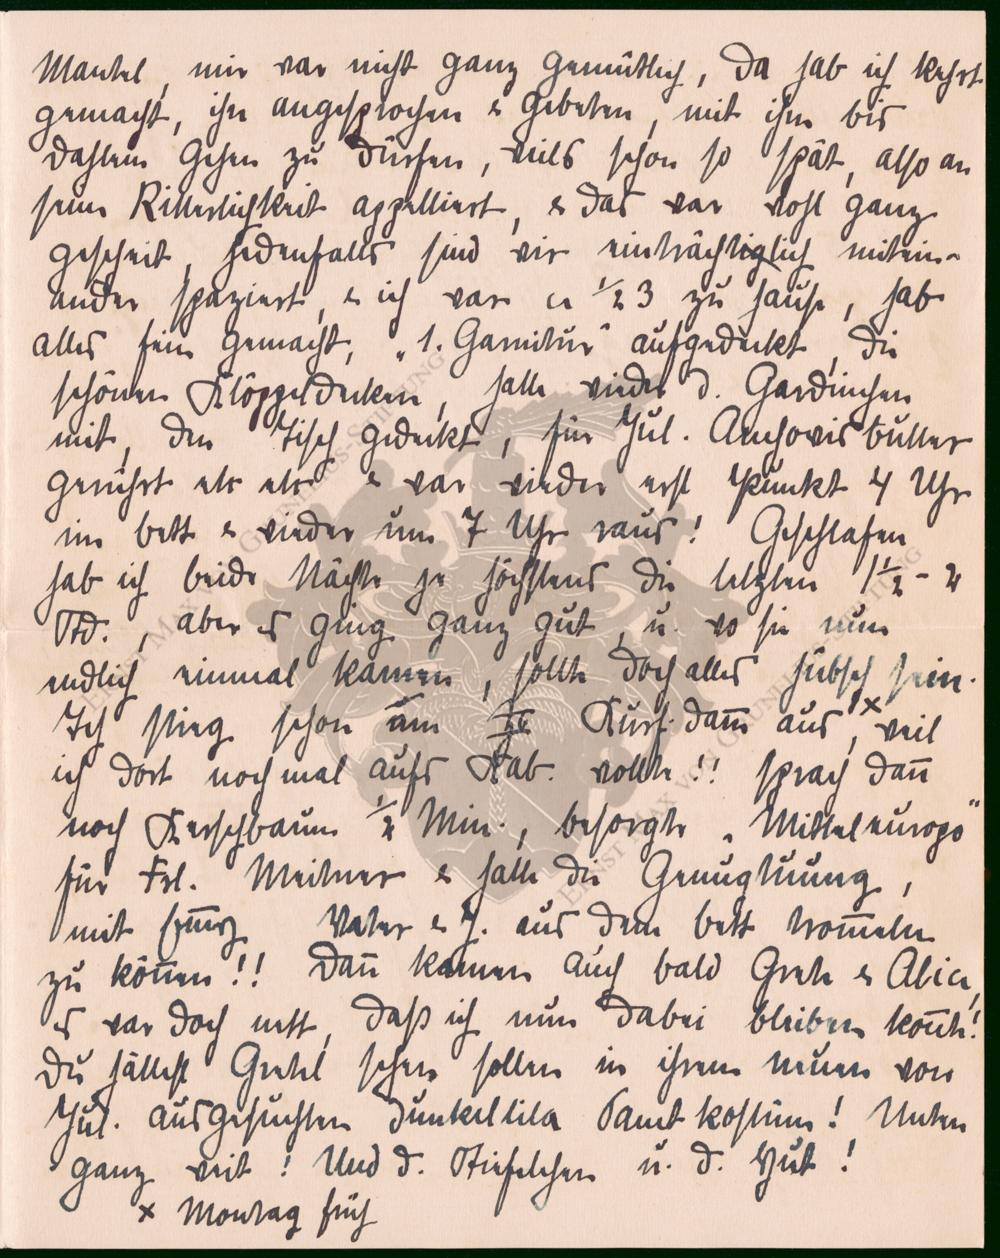 Mantel, mir war nicht ganz gemütlich, da hab ich kehrt
gemacht, ihn angesprochen & gebeten, mit ihm bis
Dahlem gehen zu dürfen, weils schon so spät, also an
seine Ritterlichkeit appelliert, & das war wohl ganz
gescheit, jedenfalls sind wir einträchtiglich mitein-
ander spaziert, & ich war ca 1/2 3 zu Hause, hab
alles fein gemacht, „1. Garnitur" aufgedeckt, die
schönen Klöppeldecken, hatte wieder d. Gardinchen
mit, den Tisch gedeckt, für Jul. Anchovisbutter
gerührt etc etc & war wieder erst Punkt 4 Uhr
im bett & wieder um 7 Uhr raus! Geschlafen
hab ich beide Nächte je höchstens die letzten 1 1/2 - 2
Std., aber es ging ganz gut, u. wo sie nun
endlich einmal kamen, sollte doch alles hübsch sein.
Ich stieg schon am Kurf.dam̄ aus, x weil
ich dort nochmal aufs Kab. wollte!! sprach dan̄
noch Kerschbaum 1/2 Min., besorgte „Mitteleuropa"
für Frl. Meitner & hatte die Genugtuung,
mit Vater & J. aus dem bett trom̄eln
zu kön̄en!! Dan̄ kamen auch bald Grete & Alice,
es war doch nett, daß ich nun dabei bleiben kon̄te!
Du hättest Gretel sehen sollen in ihrem neuen von
Jul. ausgesuchten dunkellila Samtkostüm! Unten
ganz weit! Und d. Stiefelchen u. d. Hut!
x Montag früh
ERNST MAX VON GRUNELIUS-STIFTUNG
ERNST MAX VON GRUNELIUS-STIFTUNG